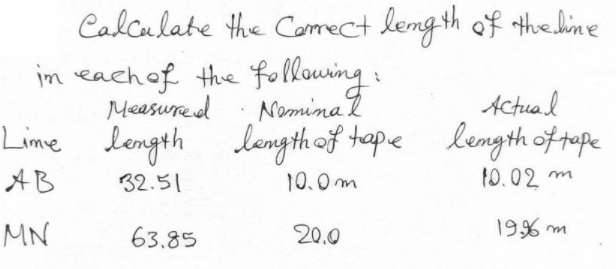 Calculate the Correct length of the line
in each of the following:
Measured Nominal Actual
Line length length of tape length of tape
AB 32.51 10.0 m 10.02 m
MN 63.85 20.0 19.96 m